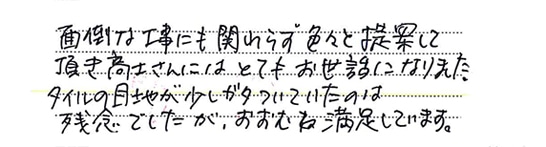 面倒な工事にも関わらず色々と提案して
頂き高士さんにはとてもお世話になりました
タイルの目地が少しガタついていたのは
残念でしたが、おおむね満足しています。